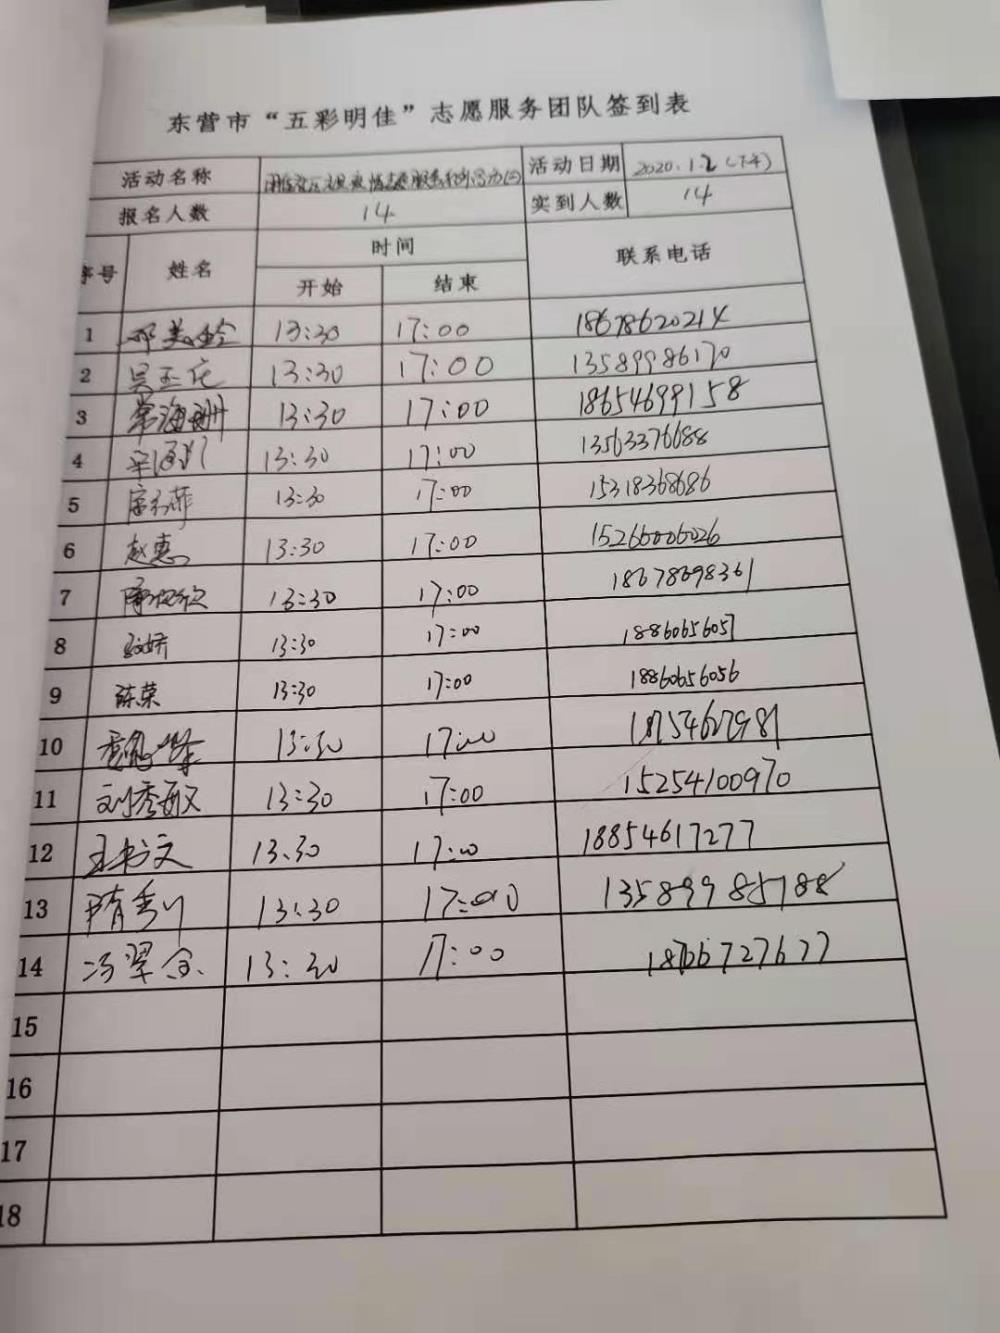 东营市“五彩明佳”志愿服务团队签到表
活动名称 活动日期 2020.1.2(下午)
报名人数 14 实到人数 14
序号 姓名 时间 联系电话
开始 结束
1 邓美玲 13:30 17:00 18678620214
2 吴玉花 13:30 17:00 13589986170
3 常海洲 13:30 17:00 18654699158
4 13:30 17:00 13563376688
5 13:30 17:00 15318368686
6 赵惠 13:30 17:00 15266006026
7 13:30 17:00 18678698361
8 13:30 17:00 18860656057
9 陈荣 13:30 17:00 18860656056
10 13:30 17:00 18754627981
11 刘秀敏 13:30 17:00 15254100970
12 王书文 13:30 17:00 18854617277
13 隋秀川 13:30 17:00 13589985788
14 冯翠金 13:30 17:00 18766727677
15
16
17
18